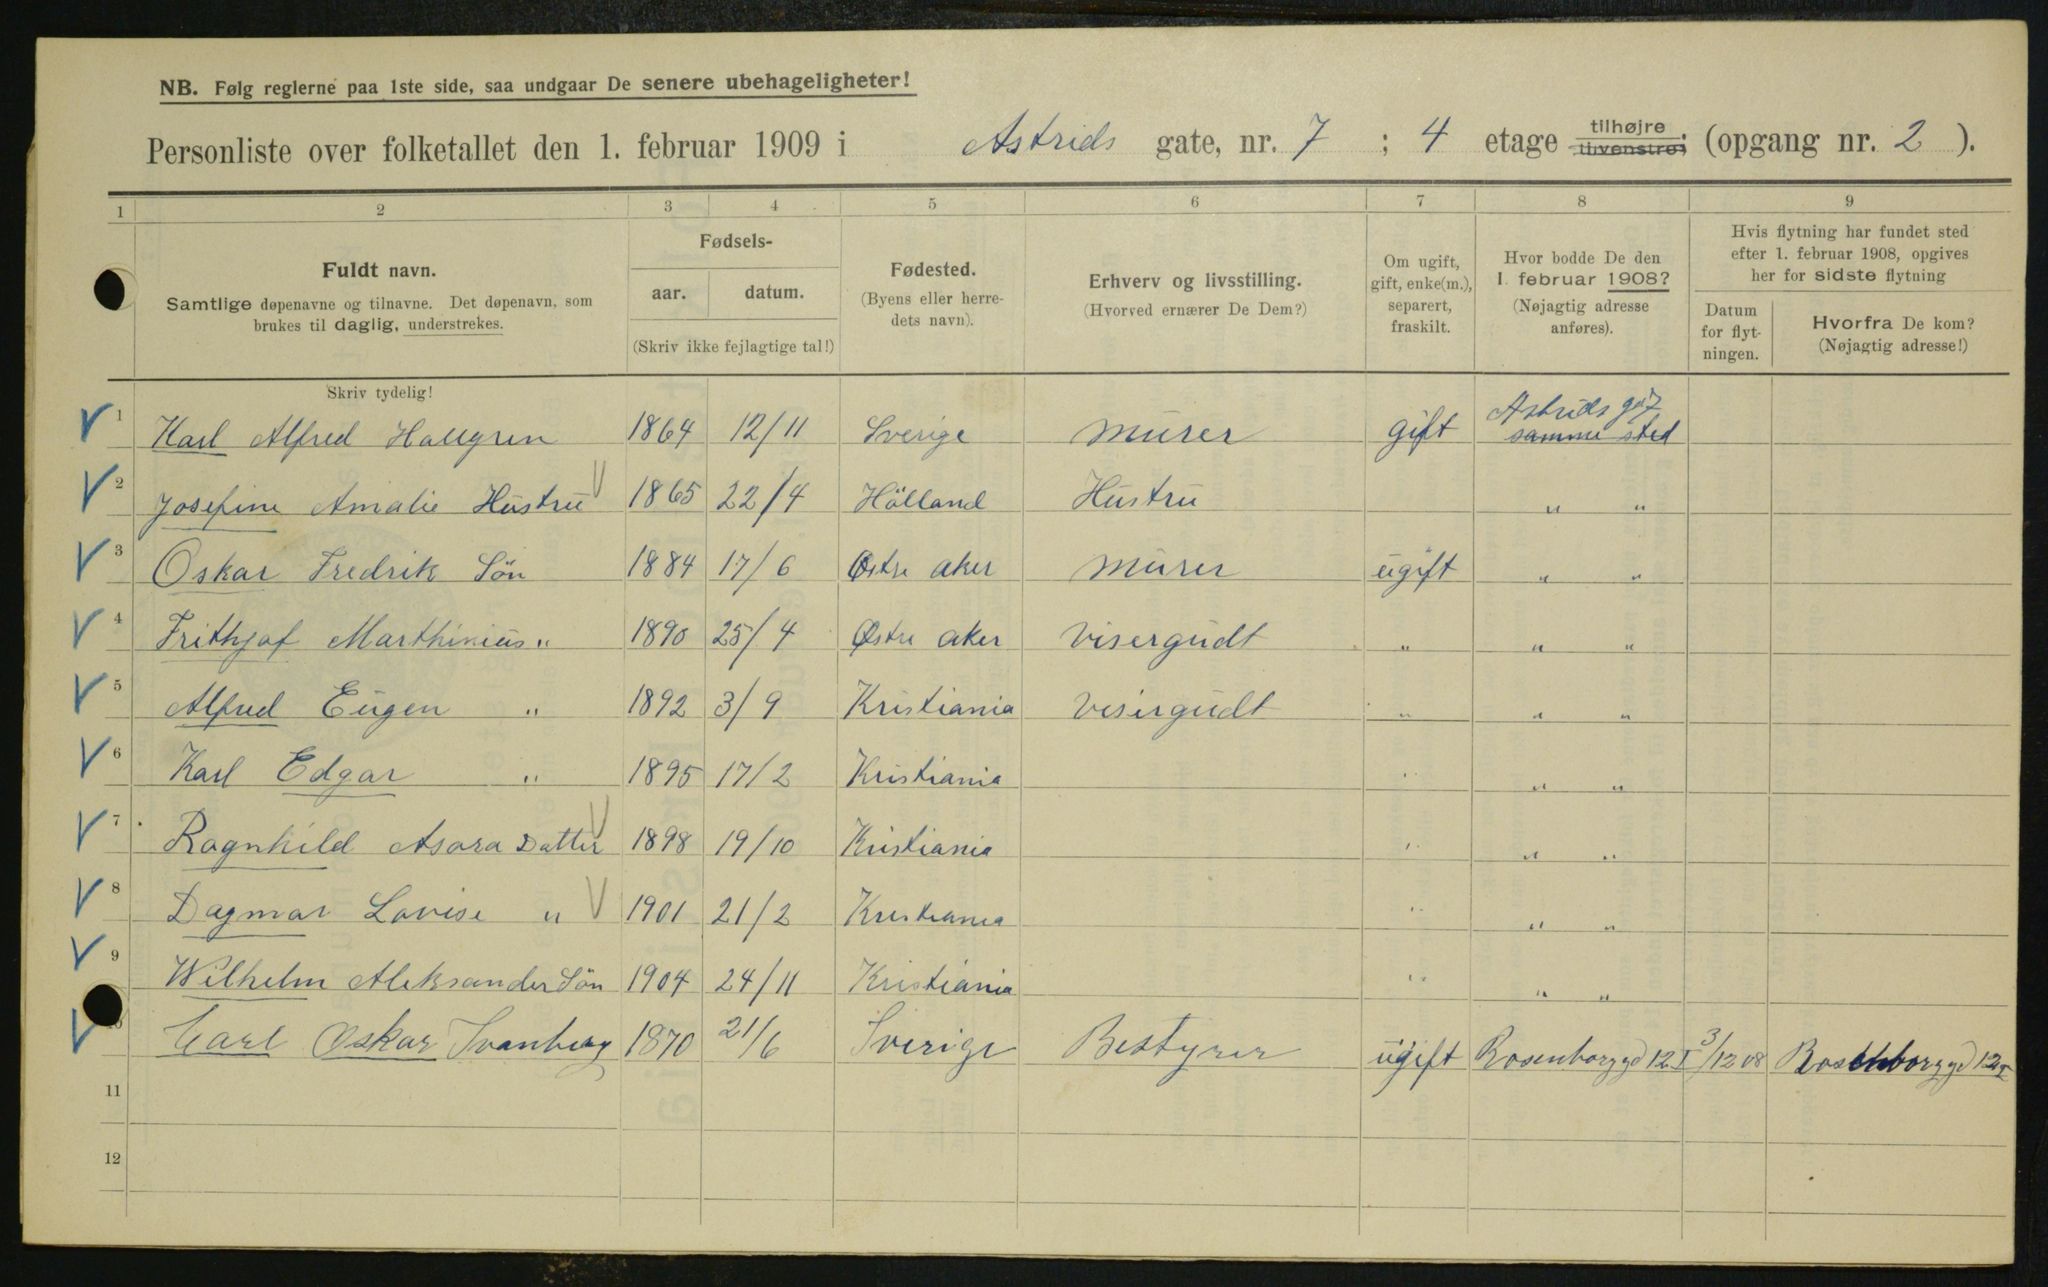 NB. Følg reglerne paa 1ste side, saa undgaar De senere ubehageligheter!
Personliste over folketallet den 1. februar 1909 i Astrids gate, nr. 7 ; 4 etage tilhøjre tilvenstre; (opgang nr. 2 ).
1 2 3 4 5 6 7 8 9
Fuldt navn.
Samtlige døpenavne og tilnavne. Det døpenavn, som
brukes til daglig, understrekes.
Fødsels-
aar. datum.
(Skriv ikke fejlagtige tal!)
Fødested.
(Byens eller herre-
dets navn).
Erhverv og livsstilling.
(Hvorved ernærer De Dem?)
Om ugift,
gift, enke(m.),
separert,
fraskilt.
Hvor bodde De den
1. februar 1908?
(Nøjagtig adresse
anføres).
Hvis flytning har fundet sted
efter 1. februar 1908, opgives
her for sidste flytning
Datum
for flyt-
ningen.
Hvorfra De kom?
(Nøjagtig adresse!)
Skriv tydelig!
1 Karl Alfred Hallgren 1864 12/11 Sverige Murer gift Astrids gd 7 samme sted
2 Josefine Amalie Hustru 1865 22/4 Hölland Hustru " "
3 Oskar Fredrik Sön 1884 17/6 Østre aker Murer ugift " "
4 Frithjof Marthinius " 1890 25/4 Østre aker Visergudt " " "
5 Alfred Eugen " 1892 3/9 Kristiania Visergudt " " "
6 Karl Edgar " 1895 17/2 Kristiania " " "
7 Ragnhild Asora Datter 1898 19/10 Kristiania " " "
8 Dagmar Lovise " 1901 21/2 Kristiania " " "
9 Wilhelm Aleksander Sön 1904 24/11 Kristiania " " "
10 Carl Oskar Svanberg 1870 21/6 Sverige Bestyrer ugift Rosenborggd 12 I 3/12 08 Rosenborggd 12 I
11
12